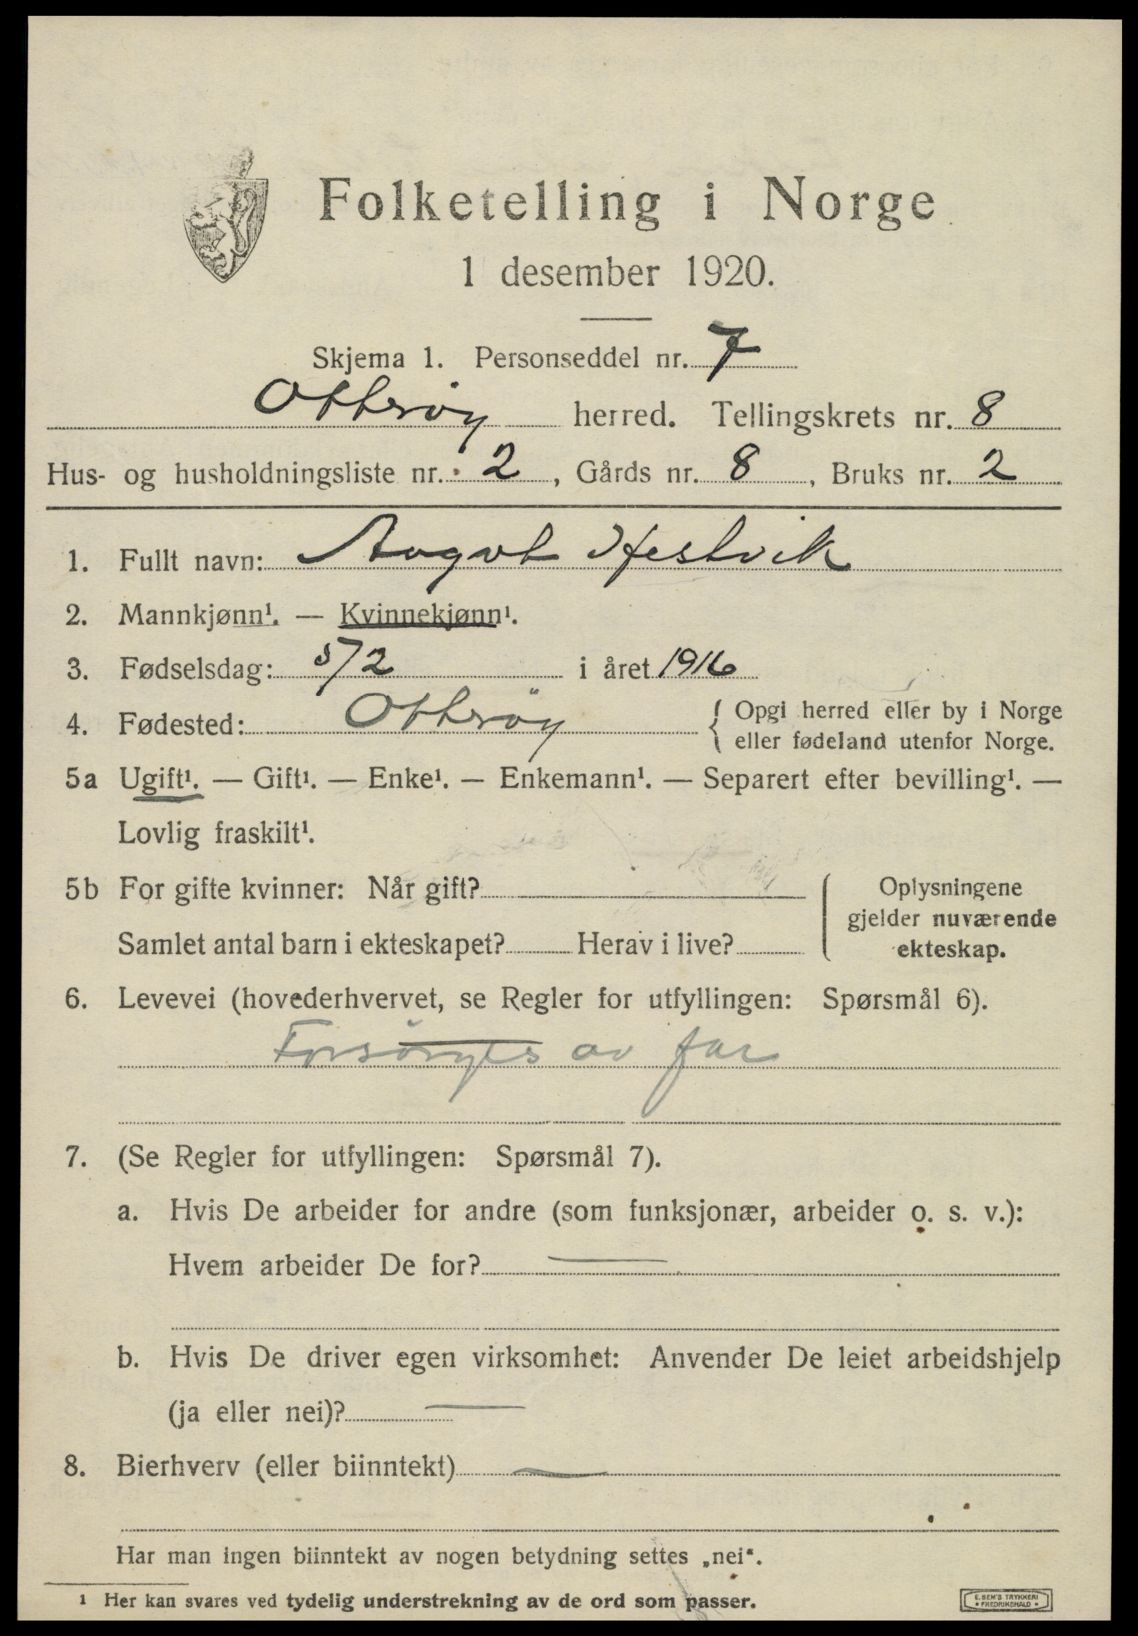 Folketelling i Norge
1 desember 1920.
Skjema 1. Personseddel nr. 7
Otterøy herred. Tellingskrets nr. 8
Hus- og husholdningsliste nr. 2, Gårds nr. 8, Bruks nr. 2
1. Fullt navn: Hestvik
2. Mannkjønn¹. — Kvinnekjønn¹.
3. Fødselsdag: 5/2 i året 1916
4. Fødested: Otterøy { Opgi herred eller by i Norge
eller fødeland utenfor Norge.
5a Ugift¹. — Gift¹. — Enke¹. — Enkemann¹. — Separert efter bevilling¹. —
Lovlig fraskilt¹.
5b For gifte kvinner: Når gift?
Samlet antal barn i ekteskapet? Herav i live?
Oplysningene
gjelder nuværende
ekteskap.
6. Levevei (hovederhvervet, se Regler for utfyllingen: Spørsmål 6).
Forsørges av far
7. (Se Regler for utfyllingen: Spørsmål 7).
a. Hvis De arbeider for andre (som funksjonær, arbeider o. s. v.):
Hvem arbeider De for? —
b. Hvis De driver egen virksomhet: Anvender De leiet arbeidshjelp
(ja eller nei)? —
8. Bierhverv (eller biinntekt) —
Har man ingen biinntekt av nogen betydning settes „nei“.
1 Her kan svares ved tydelig understrekning av de ord som passer.
E. SEM'S TRYKKERI
• FREDRIKSHALD •